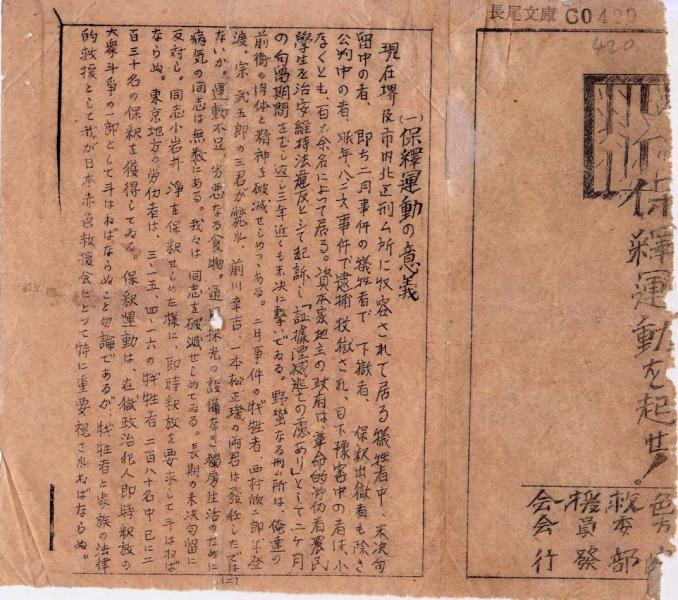 長尾文庫 C0420
420
保釋運動を起せ!
救
援員發
会会行
(一)保釋運動の意義
現在堺及市内北区刑ム所に收容されて居る犠牲者中、未決勾
留中の者、即ち二月事件の犠牲者で、下獄者、保釈出獄者も除き
公判中の者、昨年八二六事件で逮捕投獄され、目下豫審中の者は、小
なくとも、百 余名によつて居る。資本家地主の政府は、革命的労仂者農民
學生を治安維持法違反として起訴し「証據湮滅逃亡の虞あり」として二ヶ月
の勾留期間をむし返し三年近くも未決に撃いでゐる。野蛮なる刑ム所は、俺達の
前衛の肉体と精神を破滅せしめつゝある。二月事件の犠牲者西村欣二郎
渡、宗武五郎の三君が斃れ、前川幸吉、一本松正 の両君は發狂したでは
(二)
ないか。運動不足、劣悪なる食物、通 採光の設備なき獨房生活のために
病気の同志は無数にある。我々は同志を破滅せしめてゐる。長期の未決勾留に
反対し、同志小岩井 淨を保釈せしめた様に、即時釈放を要求して斗はねば
ならぬ。東京地方の労仂者は、三・一五、四・一六の犠牲者二百八十名中已に二
百三十名の保釈を獲得してゐる。保釈運動は、在獄政治犯人即時釈放の
大衆斗争の一部として斗はねばならぬこと勿論であるが、犠牲者と家族の法律
的救援として我が日本赤色救援会にとつて特に重要視されねばならぬ。